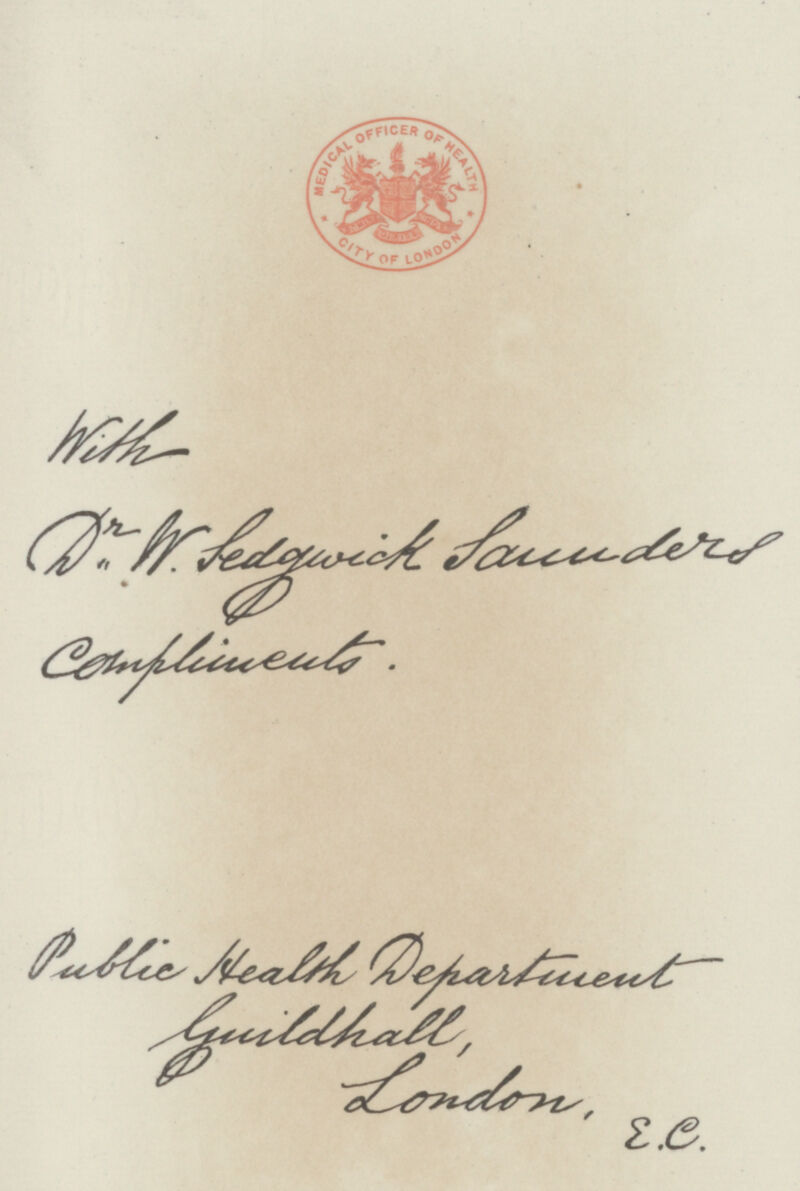 MEDICAL OFFICER OF HEALTH
CITY OF LONDON
With
Dr. W. Sedgwick Saunders
Compliments.
Public Health Department
Guildhall,
London,
E.C.